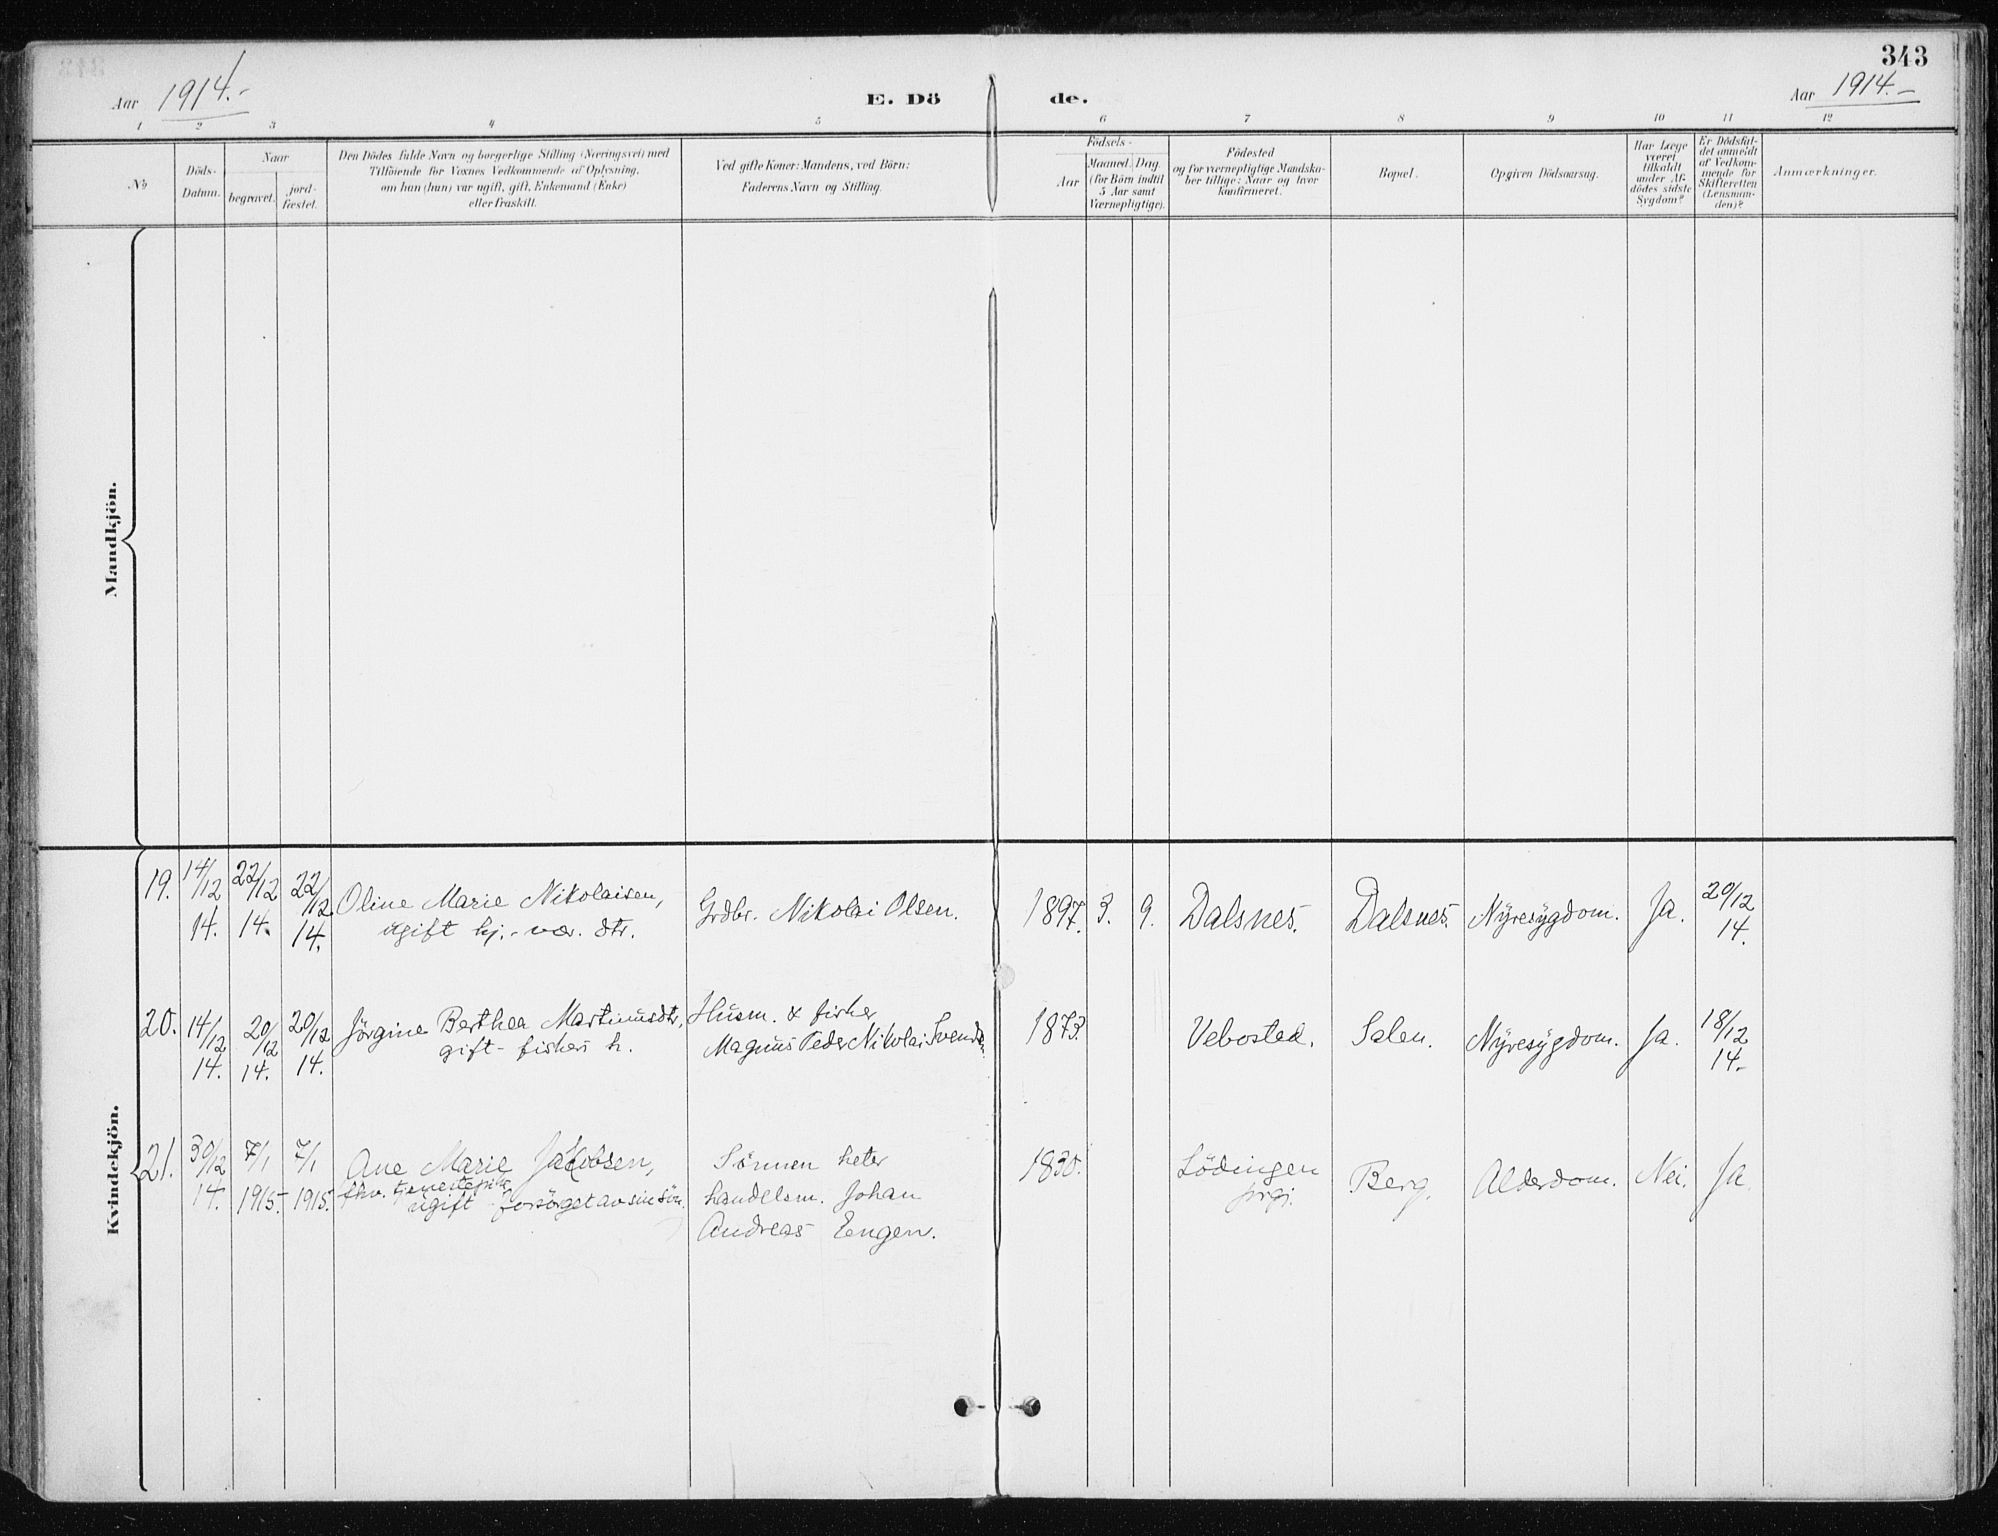 343
Aar 1914.-
E. Dö
de.
Aar 1914.-
1 2 3 4 5 6 7 8 9 10 11 12
No
Döds-
Datum.
Naar
begravet.
jord-
fæstet.
Den Dödes fulde Navn og borgerlige Stilling (Næringsvei) med
Tilföiende for Voxnes Vedkommende af Oplysning,
om han (hun) var ugift, gift, Enkemand (Enke)
eller fraskilt.
Ved gifte Koner: Mandens, ved Börn:
Faderens Navn og Stilling.
Födsels-
Aar
Maaned. Dag.
(for Börn indtil
5 Aar samt
Værnepligtige).
Födested
og for værnepligtige Mandska-
ber tillige: Naar og hvor
konfirmeret.
Bopæl.
Opgiven Dödsaarsag.
Har Læge
været
tilkaldt
under Af-
dödes sidste
Sygdom?
Er Dödsfal-
det anmeldt
af Vedkom-
mende for
Skifteretten
(Lensman-
den)?
Anmærkninger.
Mandkjön.
Kvindekjön.
19.
14/12
14.
22/12
14.
22/12
14.
Oline Marie Nikolaisen,
ugift hj.-vær. dtr.
Grdbr. Nikolai Olsen.
1897. 3. 9.
Dalsnes.
Dalsnes.
Nyresygdom.
Ja.
20/12
14.
20.
14/12
14.
20/12
14.
20/12
14.
Jörgine Berthea Martinusdtr,
gift- fiskers h.
Husm. & fisker
Magnus Peder Nikolai Svends
1873.
Vebostad.
Salen.
Nyresygdom.
Ja.
18/12
14.-
21.
30/12
14.
7/1
1915.
7/1
1915.
Ane Marie Jakobsen,
fhv. tjenestepike
ugift forsörget av sin sön.
Sönnen heter
handelsm. Johan
Andreas Engen.
1830.
Lödingen
prgj.
Berg.
Alderdom.
Nei.
Ja.